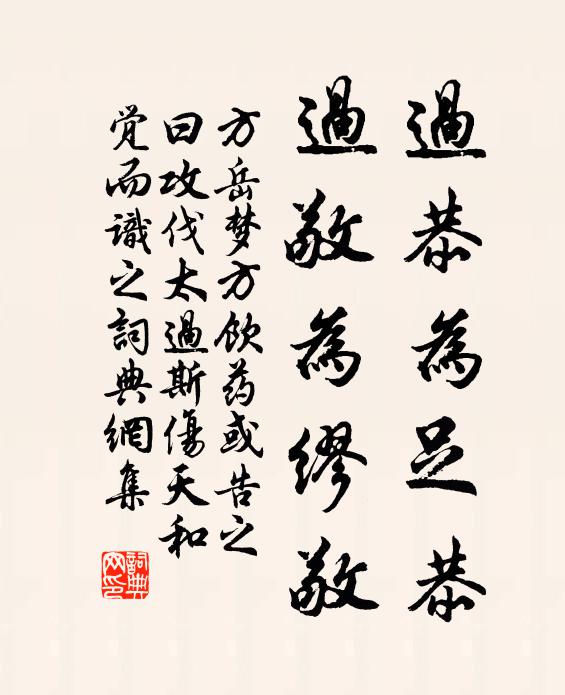 過恭為足恭
過敬為繆敬
方岳梦方饮药或告之
曰攻伐太過斯傷天和
觉而識之詞典網集
詞典網印